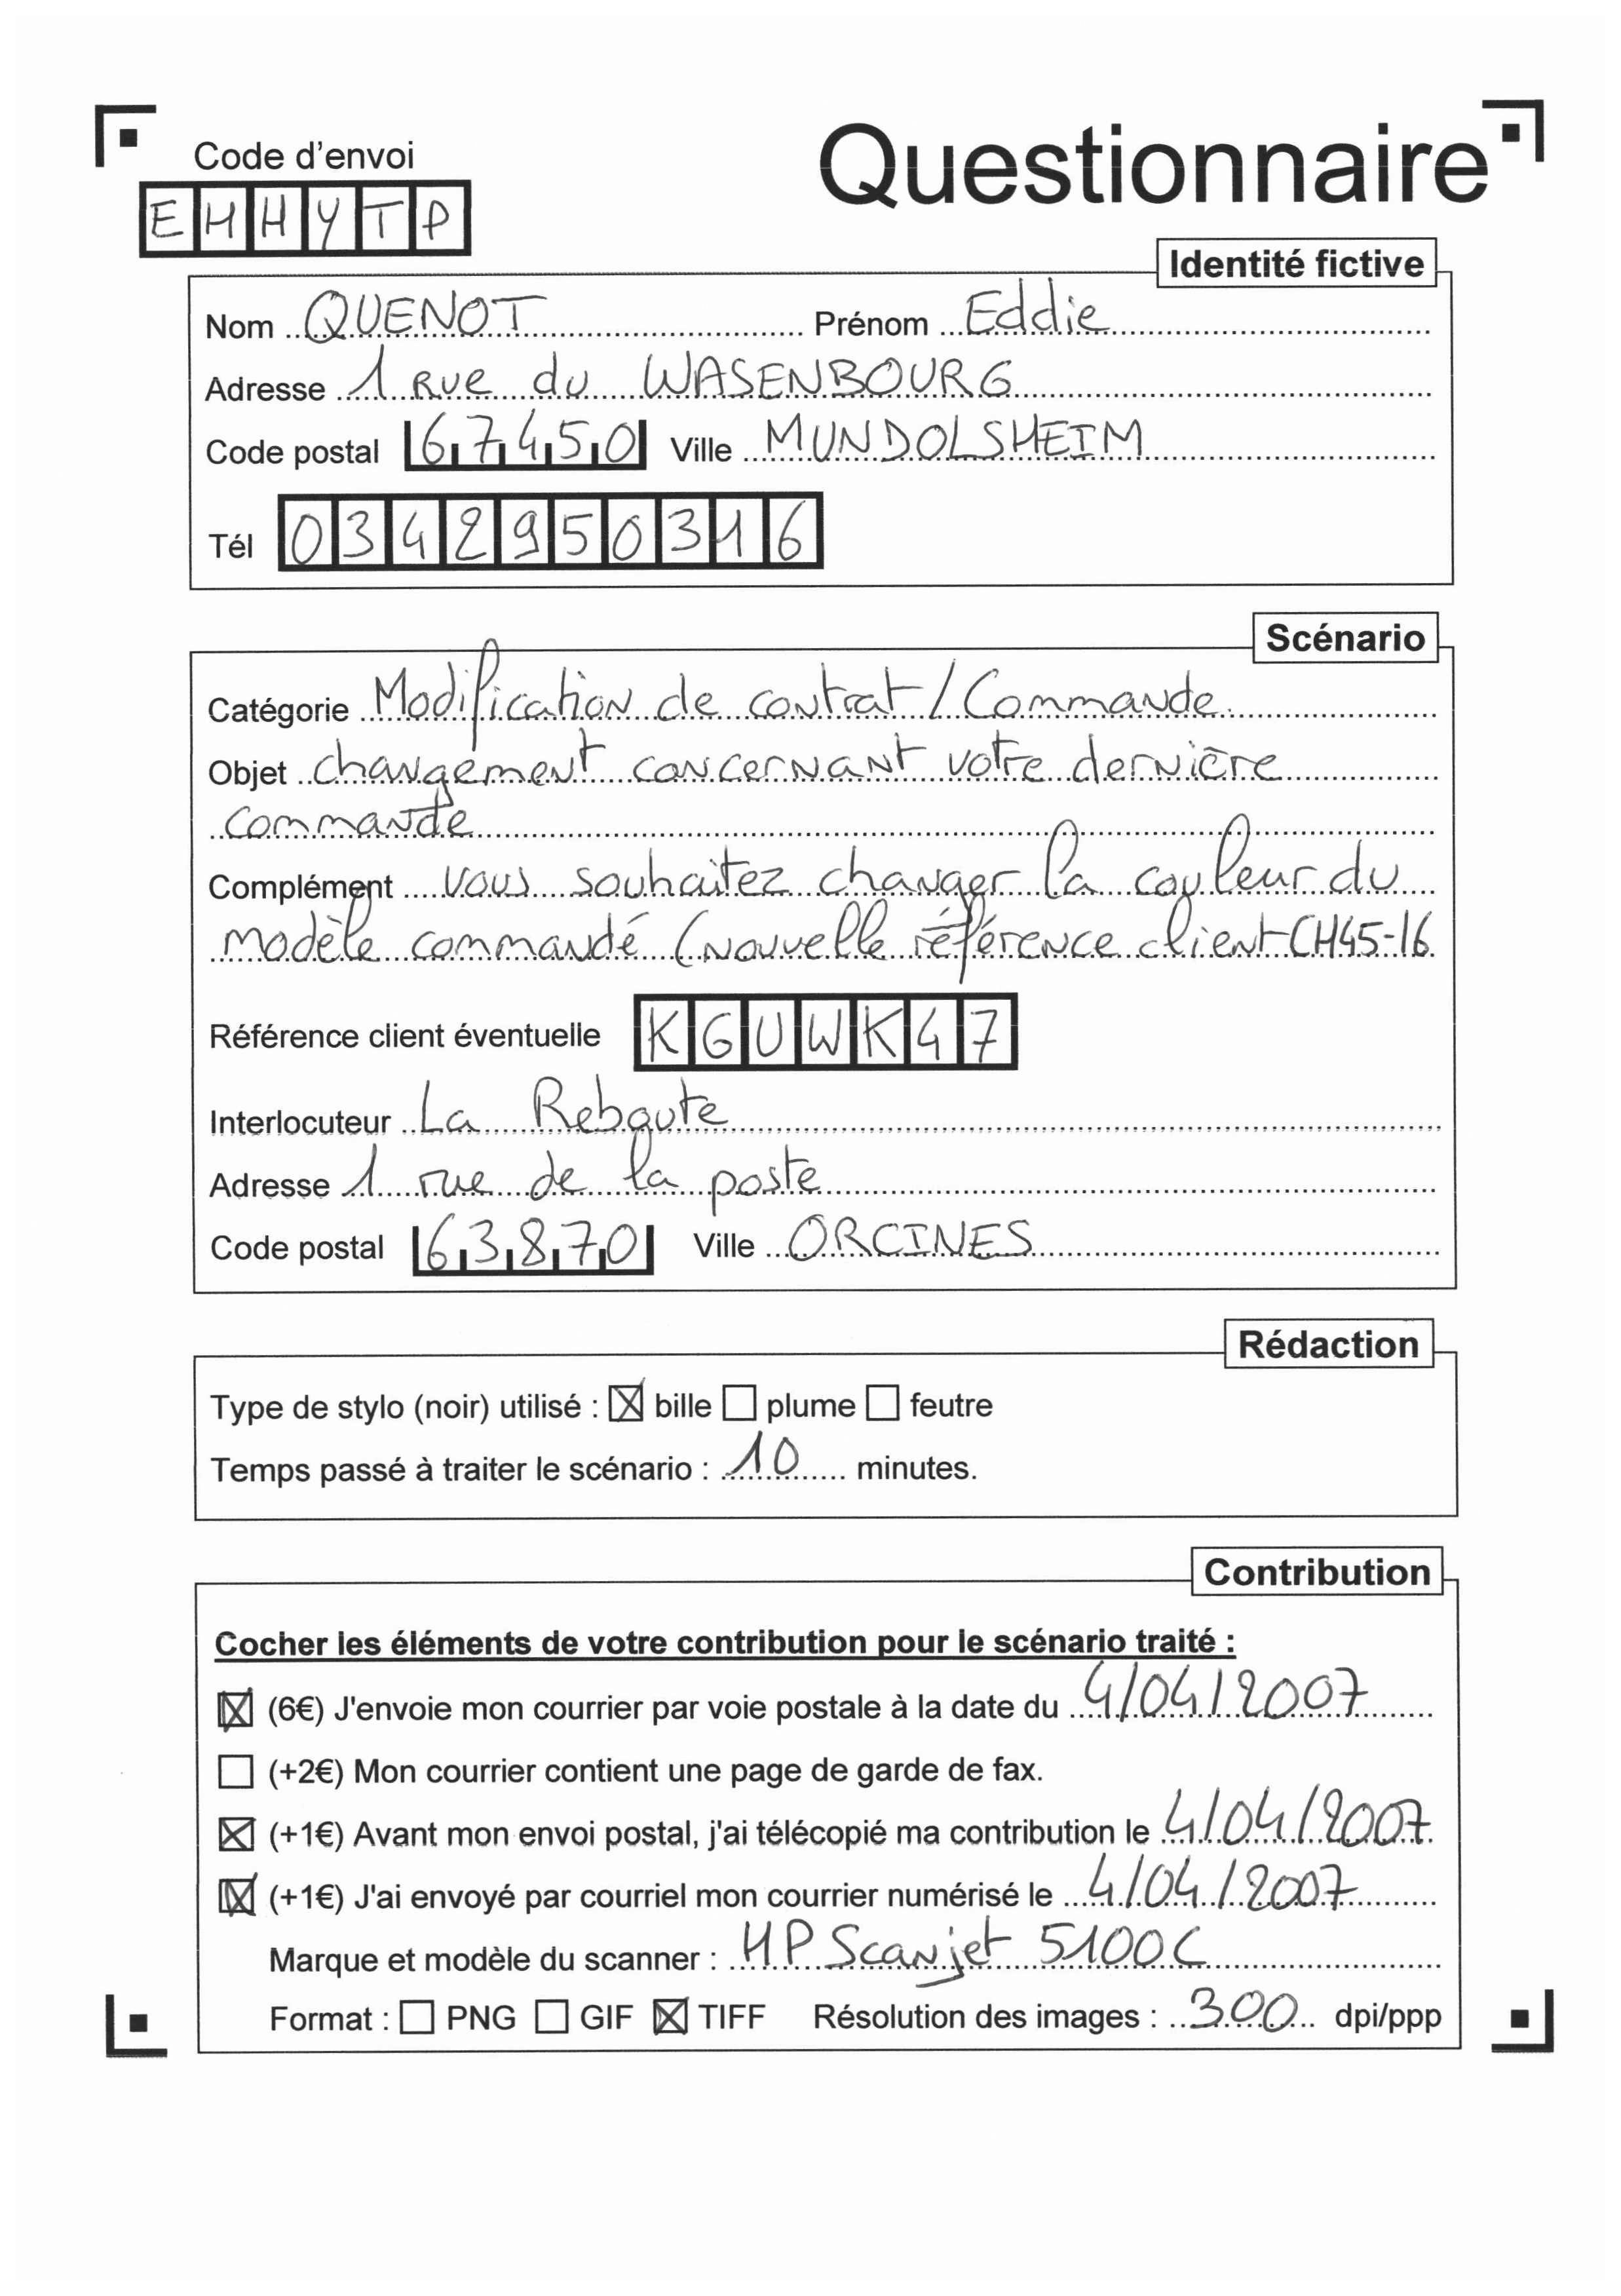 Code d'envoi
Questionnaire
EHHYTP
Identité fictive
Nom QUENOT Prénom Eddie
Adresse 1 Rue du WASENBOURG
Code postal 67450 Ville MUNDOLSHEIM
Tél 0342950316
Scénario
Catégorie Modification de contrat / Commande.
Objet changement concernant votre dernière
commande
Complément vous souhaitez changer la couleur du
modèle commandé (nouvelle référence client CH45-16
Référence client éventuelle KGUWK47
Interlocuteur La Reboute
Adresse 1 rue de la poste
Code postal 63870 Ville ORCINES
Rédaction
Type de stylo (noir) utilisé : ☒ bille ☐ plume ☐ feutre
Temps passé à traiter le scénario : 10 minutes.
Contribution
Cocher les éléments de votre contribution pour le scénario traité :
☒ (6€) J'envoie mon courrier par voie postale à la date du 4/04/2007
☐ (+2€) Mon courrier contient une page de garde de fax.
☒ (+1€) Avant mon envoi postal, j'ai télécopié ma contribution le 4/04/2007
☒ (+1€) J'ai envoyé par courriel mon courrier numérisé le 4/04/2007
Marque et modèle du scanner : HP Scanjet 5100C
Format : ☐ PNG ☐ GIF ☒ TIFF Résolution des images : 300 dpi/ppp